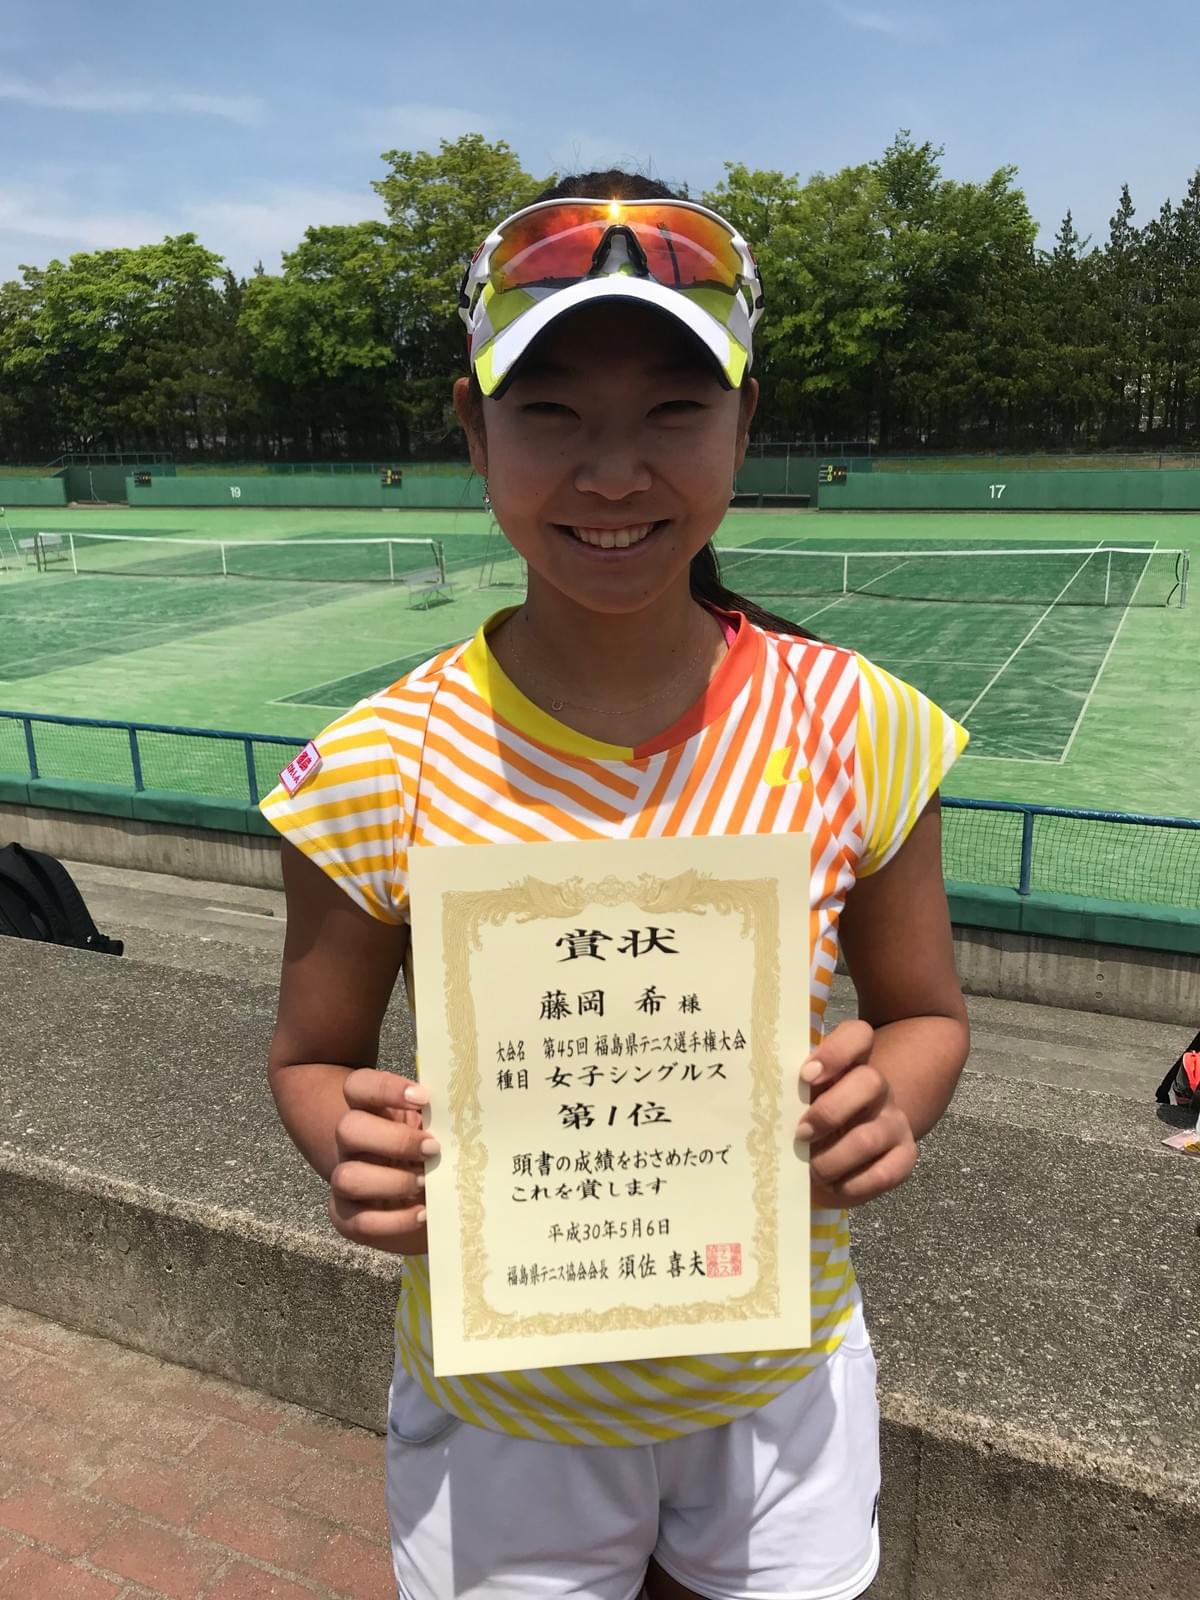 19
17
賞状
藤岡 希 様
大会名 第45回 福島県テニス選手権大会
種目 女子シングルス
第1位
頭書の成績をおさめたので
これを賞します
平成30年5月6日
福島県テニス協会会長 須佐 喜夫